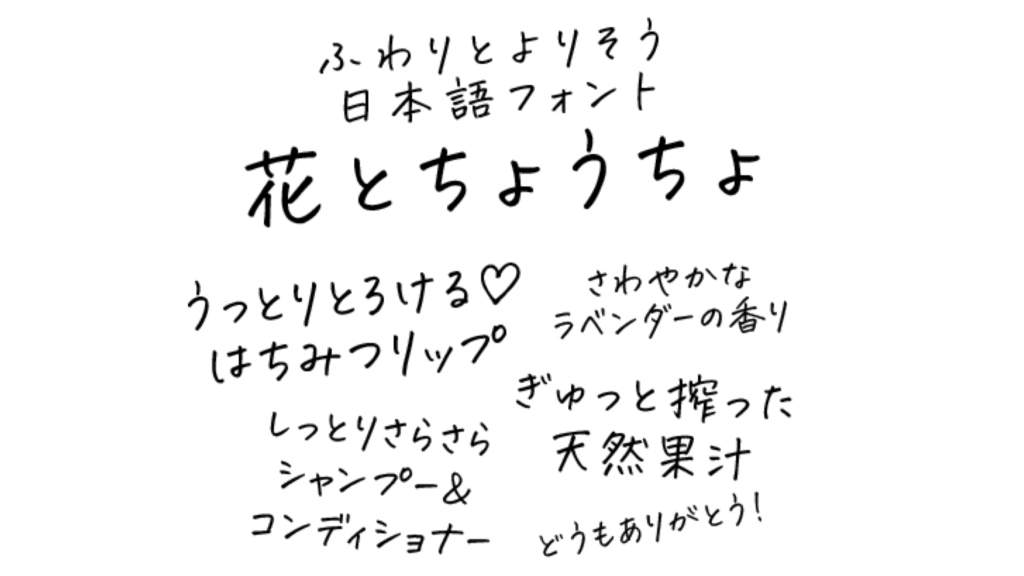 ふわりとよりそう
日本語フォント
花とちょうちょ
うっとりとろける♡
はちみつリップ
さわやかな
ラベンダーの香り
しっとりさらさら
シャンプー&
コンディショナー
ぎゅっと搾った
天然果汁
どうもありがとう!